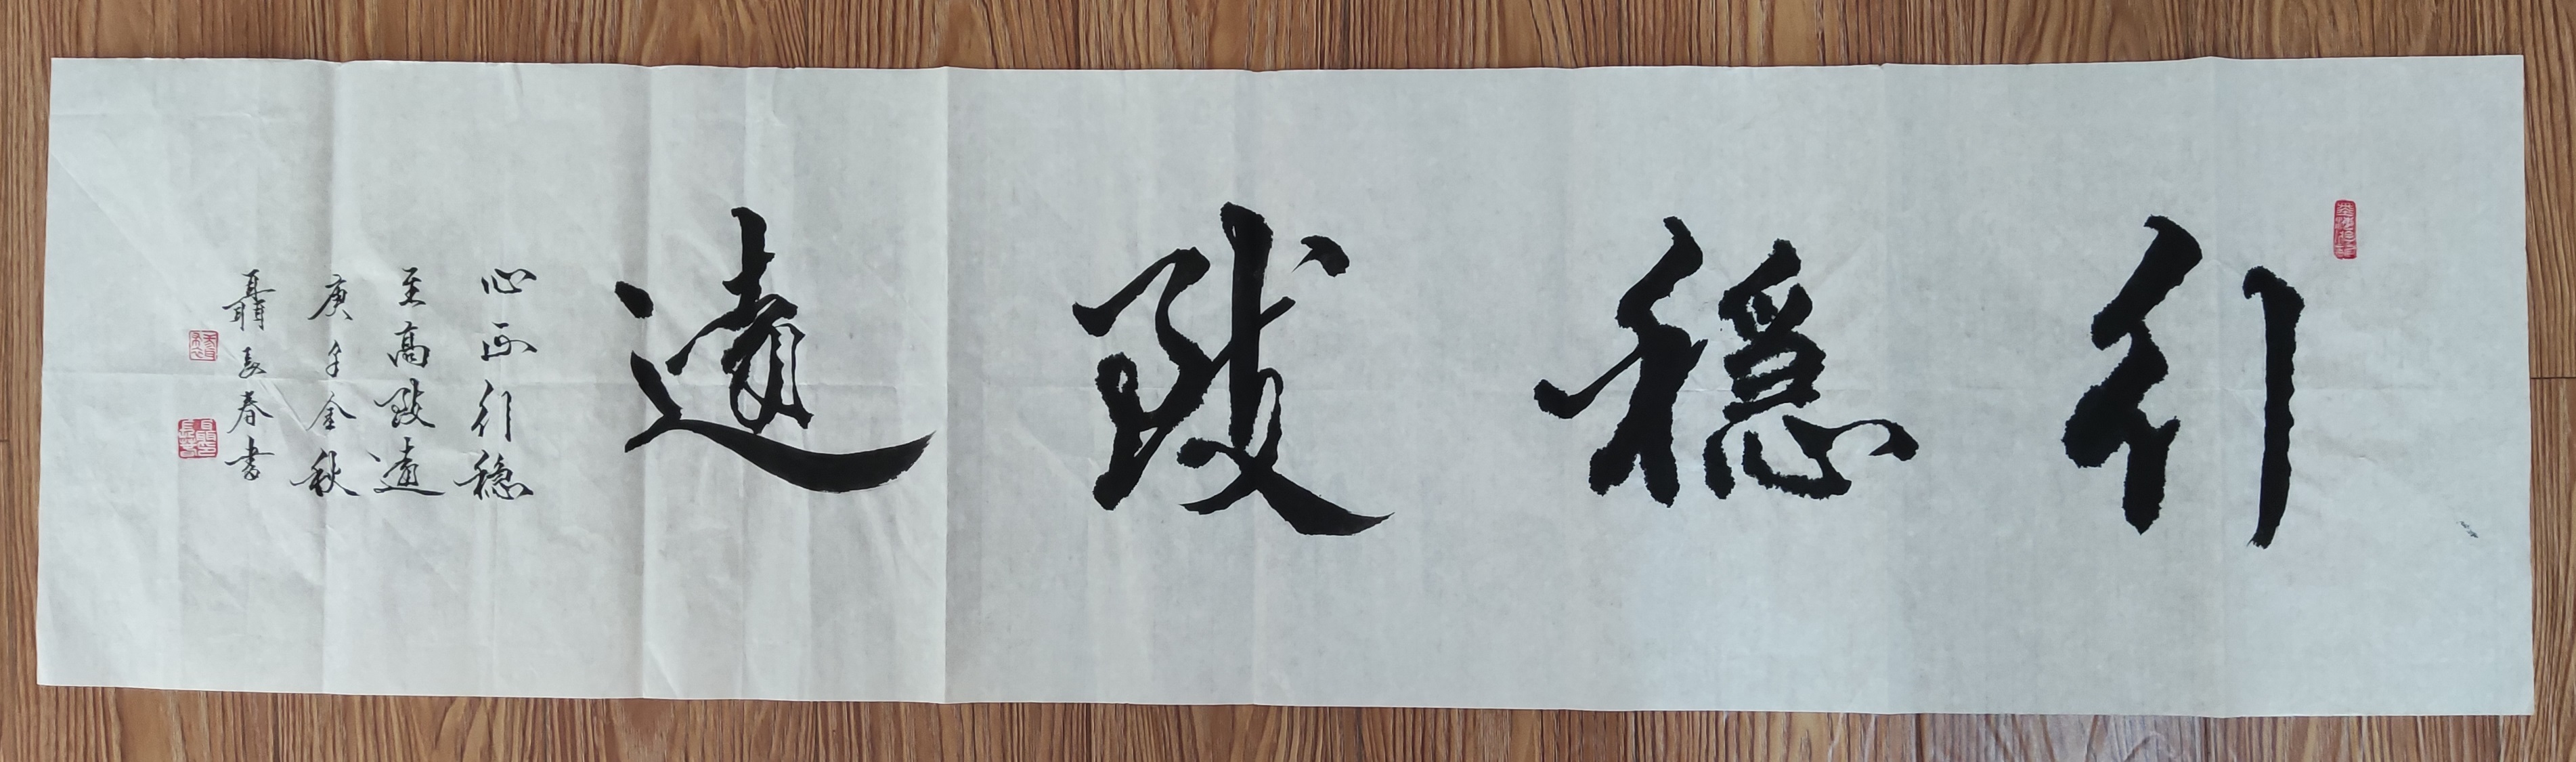 行穩致遠
心正行稳
至高致遠
庚子金秋
聶長春書